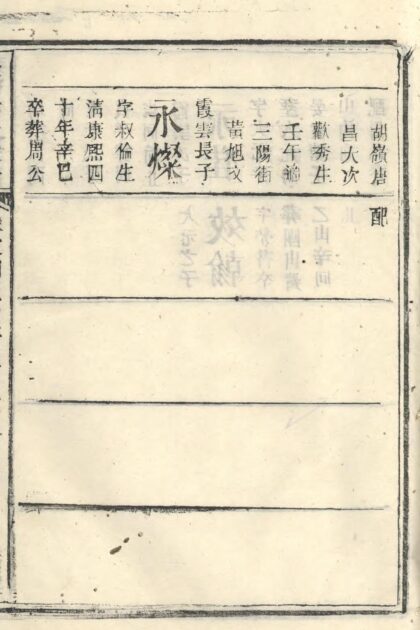 胡嶺唐
配
昌大次
歡秀生
壬午
三陽街
黃旭
霞雲長子
永燦
字叔倫生
清康熙四
十年辛巳
卒葬周公